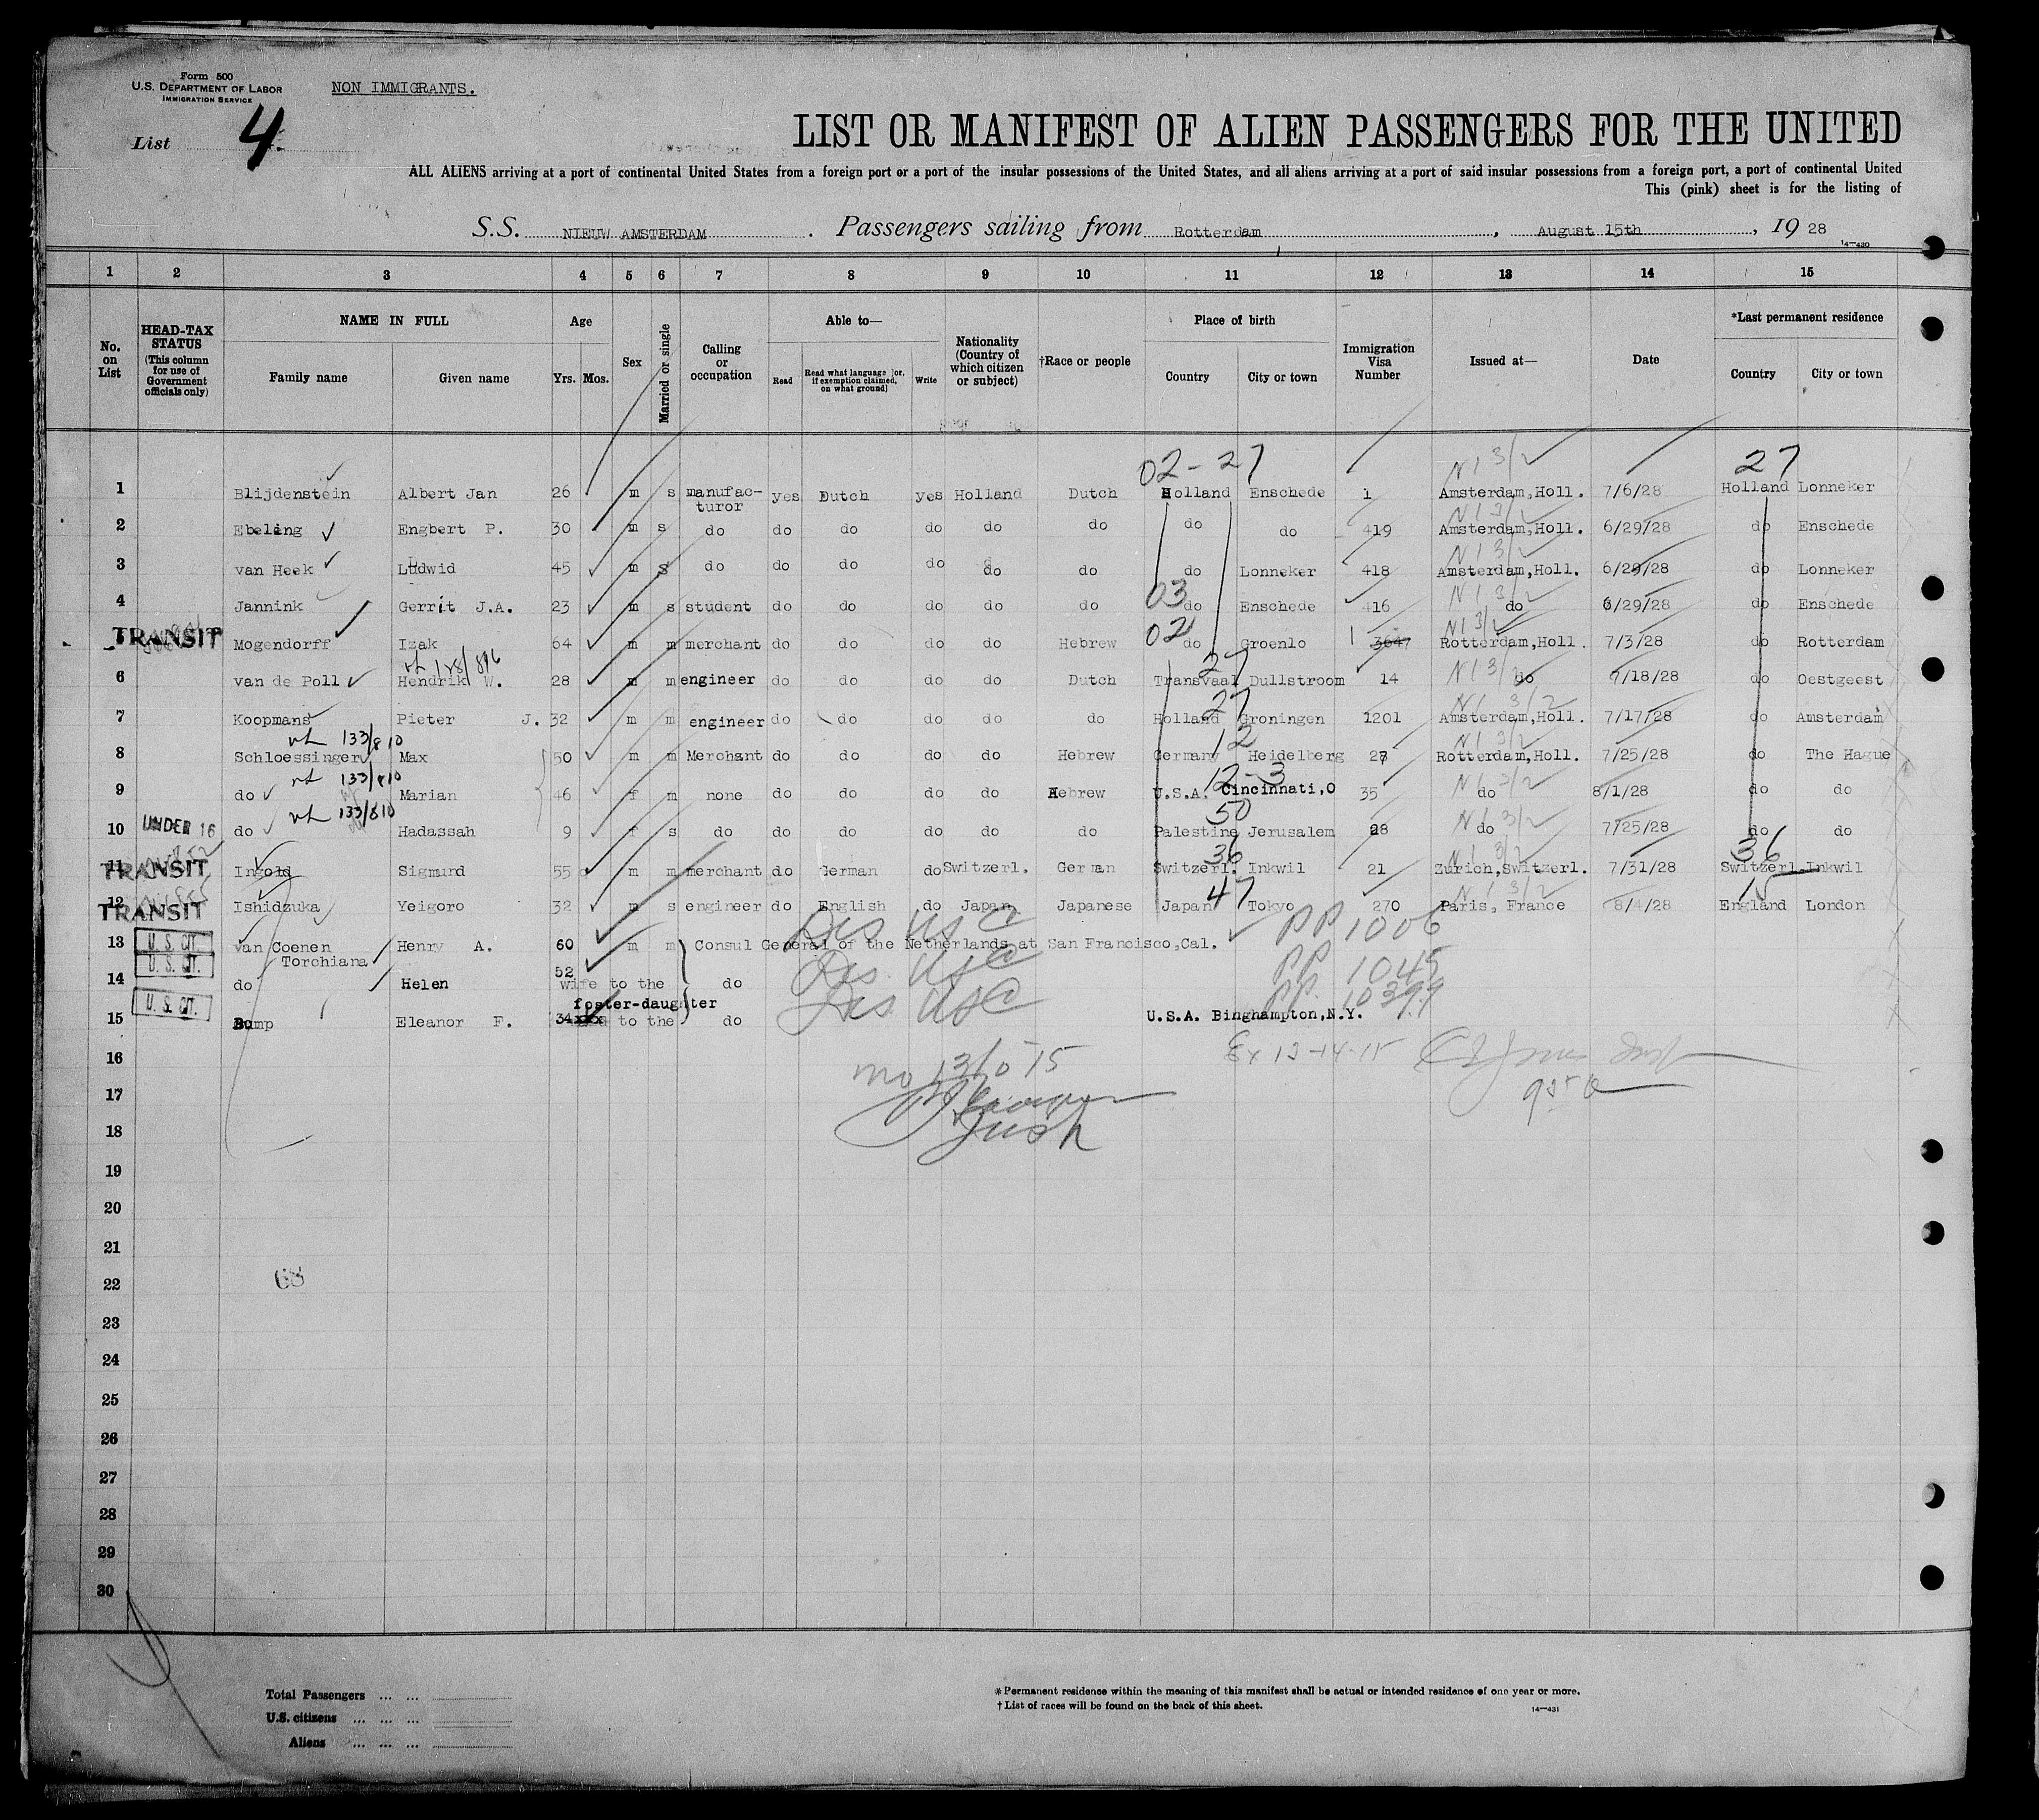 Form 500
U.S. DEPARTMENT OF LABOR
IMMIGRATION SERVICE
NON IMMIGRANTS.
List 4
LIST OR MANIFEST OF ALIEN PASSENGERS FOR THE UNITED
ALL ALIENS arriving at a port of continental United States from a foreign port or a port of the insular possessions of the United States, and all aliens arriving at a port of said insular possessions from a foreign port, a port of continental United
This (pink) sheet is for the listing of
S.S. NIEUW AMSTERDAM. Passengers sailing from Rotterdam, August 15th, 19 28
14-430
1 2 3 4 5 6 7 8 9 10 11 12 13 14 15
No. on List
HEAD-TAX STATUS (This column for use of Government officials only)
NAME IN FULL
Family name Given name
Age
Yrs. Mos.
Sex
Married or single
Calling or occupation
Able to—
Read Read what language [or, if exemption claimed, on what ground] Write
Nationality (Country of which citizen or subject)
†Race or people
Place of birth
Country City or town
Immigration Visa Number
Issued at—
Date
*Last permanent residence
Country City or town
02-27 N I 3/2 27
1 Blijdenstein Albert Jan 26 m s manufac-turor yes Dutch yes Holland Dutch Holland Enschede 1 Amsterdam,Holl. 7/6/28 Holland Lonneker
N I 3/2
2 Ebeling Engbert P. 30 m s do do do do do do do do 419 Amsterdam,Holl. 6/29/28 do Enschede
N I 3/2
3 van Heek Ludwid 45 m s do do do do do do do Lonneker 418 Amsterdam,Holl. 6/29/28 do Lonneker
03 N I 3/2
4 Jannink Gerrit J.A. 23 m s student do do do do do do Enschede 416 do 6/29/28 do Enschede
02 N I 3/2
5 TRANSIT Mogendorff Izak 64 m m merchant do do do do Hebrew do Groenlo 1 3647 Rotterdam,Holl. 7/3/28 do Rotterdam
128/896 27 N I 3/2
6 van de Poll Hendrik W. 28 m m engineer do do do do Dutch Transvaal Dullstroom 14 do 7/18/28 do Oestgeest
27 N I 3/2
7 Koopmans Pieter J. 32 m m engineer do do do do do Holland Groningen 1201 Amsterdam,Holl. 7/17/28 do Amsterdam
133/810 12 N I 3/2
8 Schloessinger Max 50 m m Merchant do do do do Hebrew Germany Heidelberg 28 Rotterdam,Holl. 7/25/28 do The Hague
133/810 12-3 N I 3/2
9 do Marian 46 f m none do do do do Hebrew U.S.A. Cincinnati,O 35 do 8/1/28 do do
133/810 50 N I 3/2
10 UNDER 16 do Hadassah 9 f s do do do do do do Palestine Jerusalem 28 do 7/25/28 do do
36 N I 3/2 36
11 TRANSIT Ingold Sigmund 55 m m merchant do German do Switzerl. German Switzerl. Inkwil 21 Zurich,Switzerl. 7/31/28 Switzerl. Inkwil
47 N I 3/2 15
12 TRANSIT Ishidzuka Yeigoro 32 m s engineer do English do Japan Japanese Japan Tokyo 270 Paris, France 8/4/28 England London
Dis USC PP 1006
13 U. S. CIT. van Coenen Torchiana Henry A. 60 m m Consul General of the Netherlands at San Francisco,Cal.
U. S. CIT.
Dis. USC PP 1045
14 do Helen 52 wife to the do
U. S. CIT. Dis. USC PP. 10399
15 Bump Eleanor F. 34 foster-daughter to the do U.S.A. Binghampton,N.Y.
16 Ex 13-14-15
17
18
19
20
21
22 68
23
24
25
26
27
28
29
30
Total Passengers ... ...
U.S. citizens ... ... ...
Aliens ... ... ...
*Permanent residence within the meaning of this manifest shall be actual or intended residence of one year or more.
†List of races will be found on the back of this sheet.
14-431